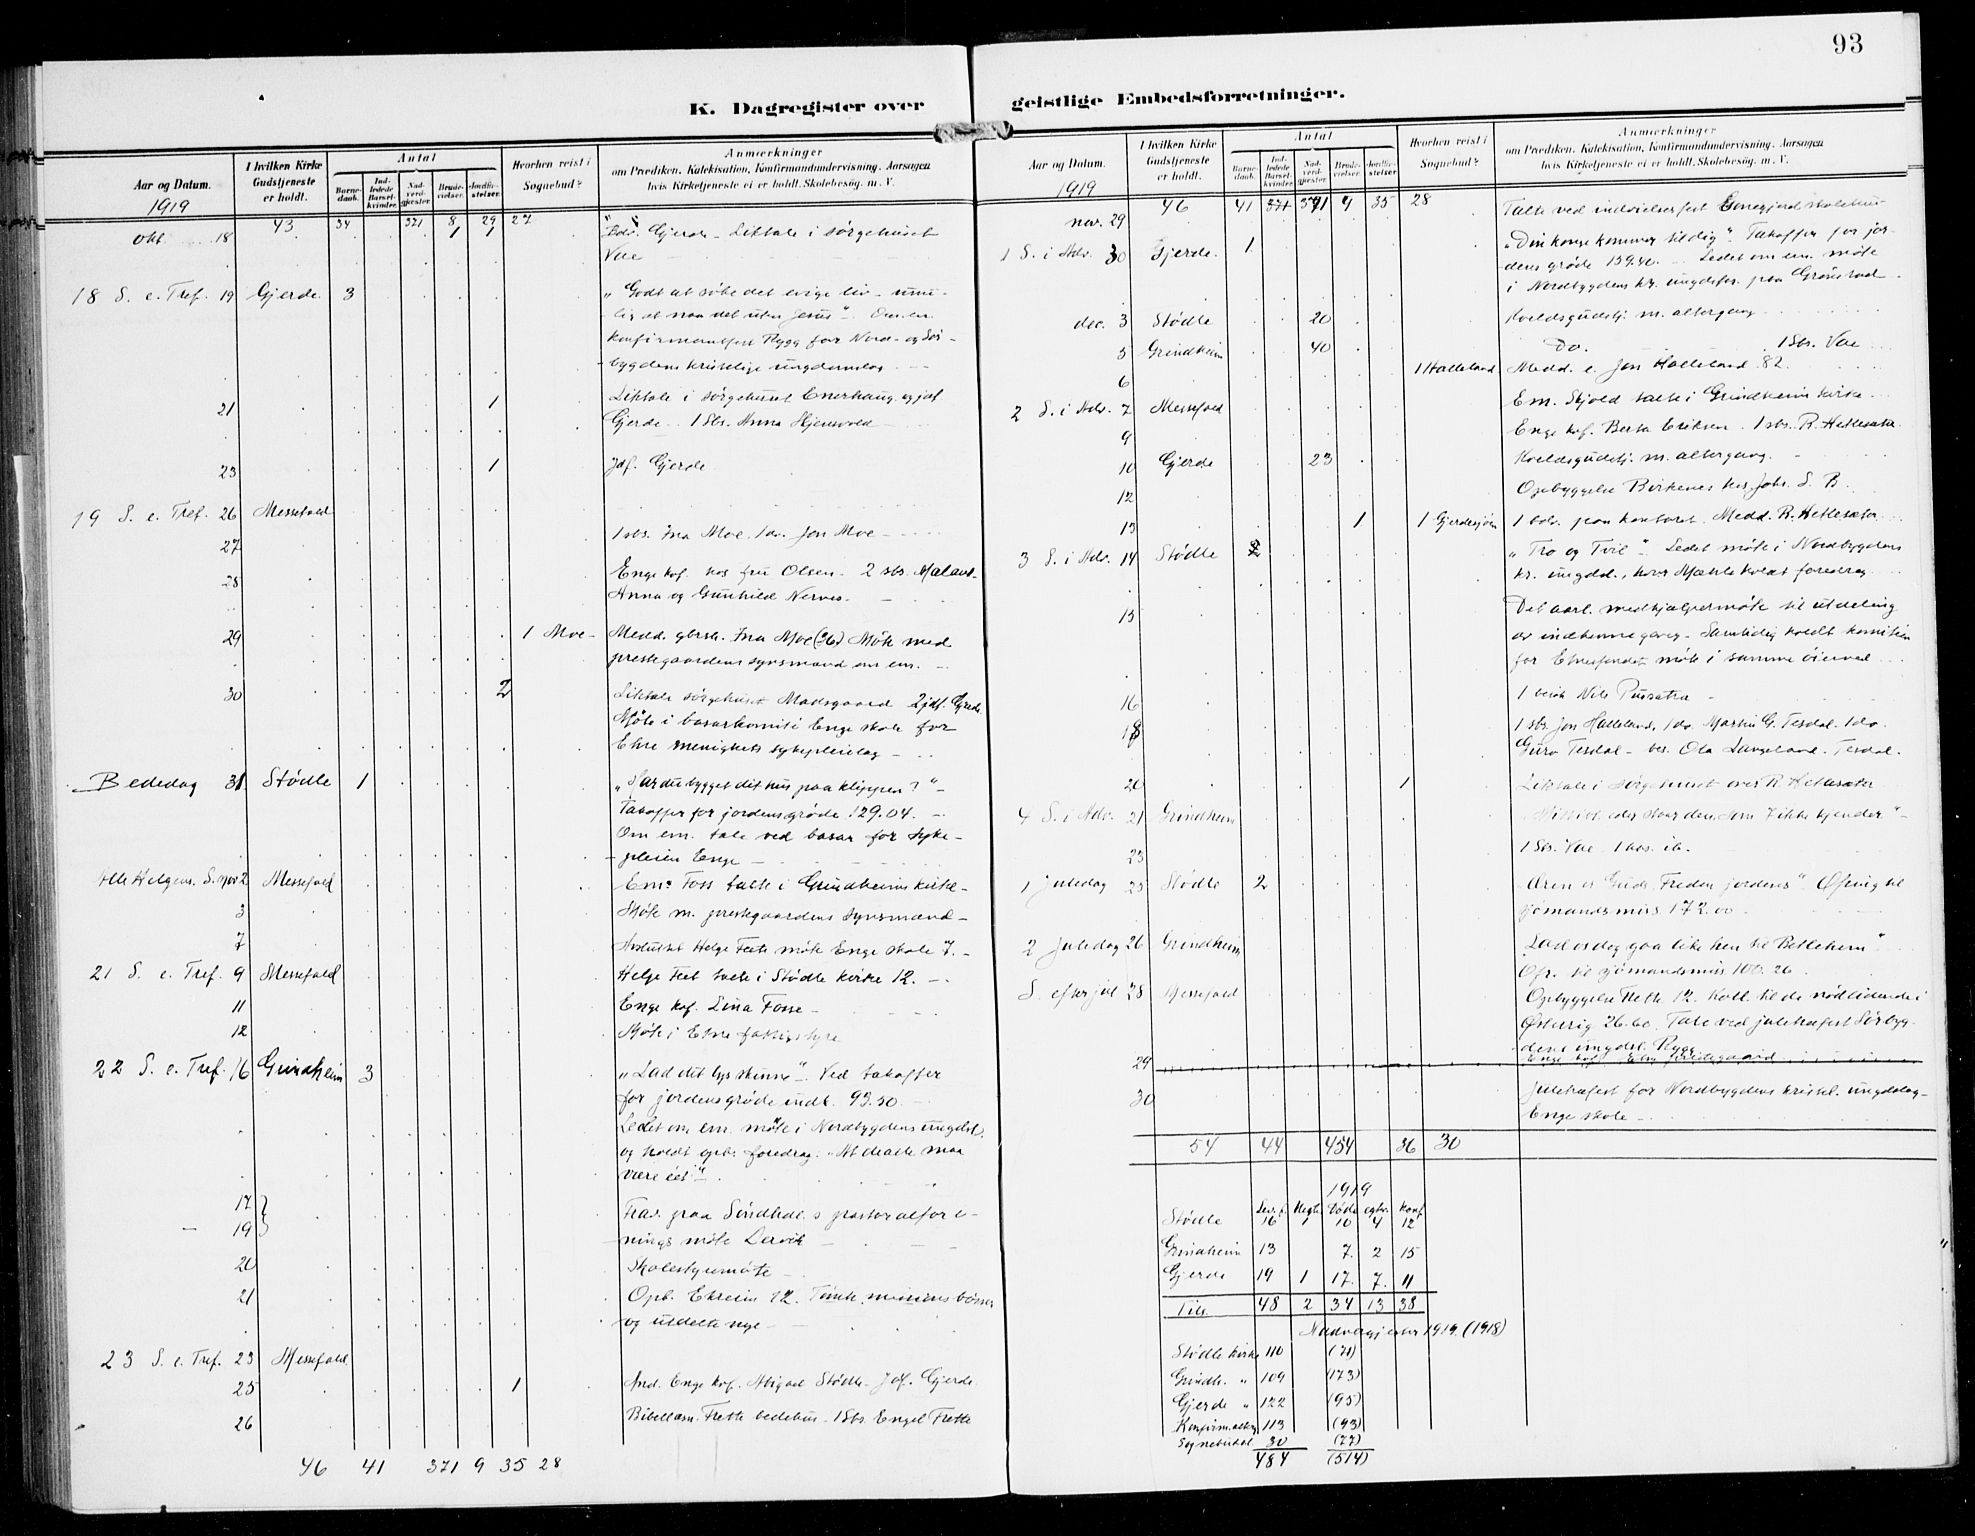 93
K. Dagregister over
Aar og Datum.
1919
I hvilken Kirke
Gudstjeneste
er holdt.
Antal
Barne-
daab.
Ind-
ledede
Barsel-
kvinder.
Nad-
verd-
gjæster.
Brude-
vielser.
Jordfæ-
stelser.
Hvorhen reist i
Sognebud?
Anmærkninger
om Prædiken, Katekisation, Konfirmandundervisning, Aarsagen
hvis Kirketjeneste ei er holdt. Skolebesøg. m. V.
43 34 321 8 29 27
okt. 18 1 1 Gjerde - Liktale i sørgehuset
Vae
18 S. e. Tref. 19 Gjerde 3 "Godt at søke det evige liv - umu-
lig at naa det uten Jesus". Om em.
konfirmantfest Rygg for Nord- og Sør-
bygdens kristelige ungdomslag
21 1 Liktale i sørgehuset Enerhaug og jdf.
Gjerde. 1 sbs. Anna
23 1 Jdf. Gjerde
19 S. e. Tref. 26 Messefald
27 1 sbs. Ina Moe, 1 do. Jon Moe
28 Enge kof. hos fru Olsen. 2 sbs.
Anna og Gunhild Nernes.
29 1 Moe Medd. Ina Moe (26) Møte med
prestegaardens synsmænd om em.
30 2 Liktale sørgehuset Madsgaard 2 jdf. Gjerde
Møte i basarkomité Enge skole for
Etne menighets sykepleielag
Bededag 31 Stødle 1 "Har du bygget dit hus paa klippen?"
Takoffer for jordens grøde 129.04.
Om em. tale ved basar for syke-
pleien Enge
Alle Helgens S. nov 2 Messefald Em. Foss talte i Grindheim kirke
3 Møte m. prestegaardens synsmænd
7 Helge Fett møte Enge skole 7.
21 S. e. Tref. 9 Messefald Helge Fett talte i Stødle kirke 12.
11 Enge kof. Lina Fosse
12 Møte i Etne fattigstyre
22 S. e. Tref. 16 Grindheim 3 "Lad det lys skinne". Ved takoffer
for jordens grøde indk. 93.50.
Ledet om em. møte i Nordbygdens ungdsl.
og holdt opb. foredrag: "At de alle maa
være eet"
17 Frav. paa Søndhdl.s pastoralfore-
19 nings møte Lervik
20 Skolestyremøte
21 Opb. Ekreim 12. Tømte missionsbøsser
og utdelte nye
23 S. e. Tref. 23 Messefald
25 1 And. Enge kof. Abigael Stødle. Jdf. Gjerde
26 Bibellæsn. Frette bedehus. 1 sbs. Engel Frette
46 41 371 9 35 28
geistlige Embedsforretninger.
Aar og Datum.
1919
I hvilken Kirke
Gudstjeneste
er holdt.
Antal
Barne-
daab.
Ind-
ledede
Barsel-
kvinder.
Nad-
verd-
gjæster.
Brude-
vielser.
Jordfæ-
stelser.
Hvorhen reist i
Sognebud?
Anmærkninger
om Prædiken, Katekisation, Konfirmandundervisning, Aarsagen
hvis Kirketjeneste ei er holdt. Skolebesøg. m. V.
46 41 371 9 35 28
nov. 29 Talte ved indvielsesfest skolehus
1 S. i Adv. 30 Gjerde. 1 "Din konge kommer til dig". Takoffer for jor-
dens grøde 139.40. Ledet om em. møte
i Nordbygdens kr. ungdsfor. paa Grønstad
dec. 3 Stødle 20 Kveldsgudstj. m. altergang
5 Grindheim 40 Do. 1 sbs. Vae
6 1 Halleland Medd. e. Jon Halleland 82
2 S. i Adv. 7 Messefald Em. Skjold talte i Grindheim kirke
9 Enge kof. Berta Eriksen. 1 sbs. R. Hetlesæter
10 Gjerde 23 Kveldsgudstj. m. altergang.
12 Opbyggelse Birkenes hos Johs. S. B.
13 1 1 Gjerdesjøen 1 bdv. paa kontoret. Medd. R. Hetlesæter
3 S. i Adv. 14 Stødle 2 "Tro og Tvil". Ledet møte i Nordbygdens
kr. ungdsl., hvor Mæhle holdt foredrag
15 Det aarl. medhjælpermøte til utdeling
av indkomne gaver. Samtidig holdt komiteen
for Etnefondet møte i samme øiemed
16 1 besøk Nils
18 1 sbs. Jon Halleland, 1 do. Martin G. Tesdal. 1 do.
Guro Tesdal - bes. Ola Langeland. Tesdal.
20 1 Liktale i sørgehuset over R. Hetlesæter
4 S. i Adv. 21 Grindheim "Midt iblandt eder staar den, som I ikke kjender"
23 1 sbs. Vae 1 bes. ib.
1 juledag 25 Stødle 2 Æren er Guds, Freden jordens". Ofring til
sjømandsmiss. 172.00
2 juledag 26 Grindheim "Lad os dog gaa like hen til Betlehem".
Ofr. til sjømandsmiss. 100.26
S. efter jul 28 Messefald Opbyggelse Frette 12. Koll. til de nødlidende i
Østerrig 26.60. Tale ved juletræfest Sørbyg-
dens ungdsl. Rygg
29 Enge kof. prestegaard
30 Juletræfest for Nordbygdens kristel. ungdslag
Enge skole
54 44 454 36 30
1919
Lev. f. Uegte Døde egtv. Konf.
Stødle 16 1 10 4 12
Grindheim 13 7 2 15
Gjerde 19 1 17 7 11
Tils. 48 2 34 13 38
Nadvergjester 1919. (1918)
Stødle kirke 110 (71)
Grindh. " 109 (173)
Gjerde " 122 (95)
Konfirm.altg. 113 (93)
Sognebud 30 (77)
484 (514)